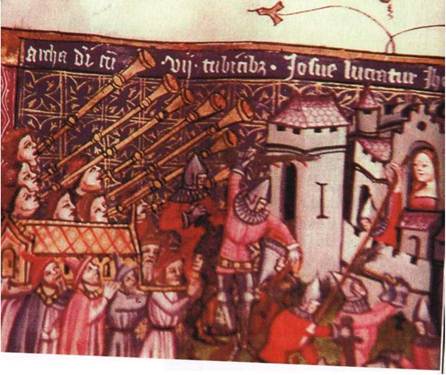 archa dñi cũ · vij · tubicibz · Josue luctatur